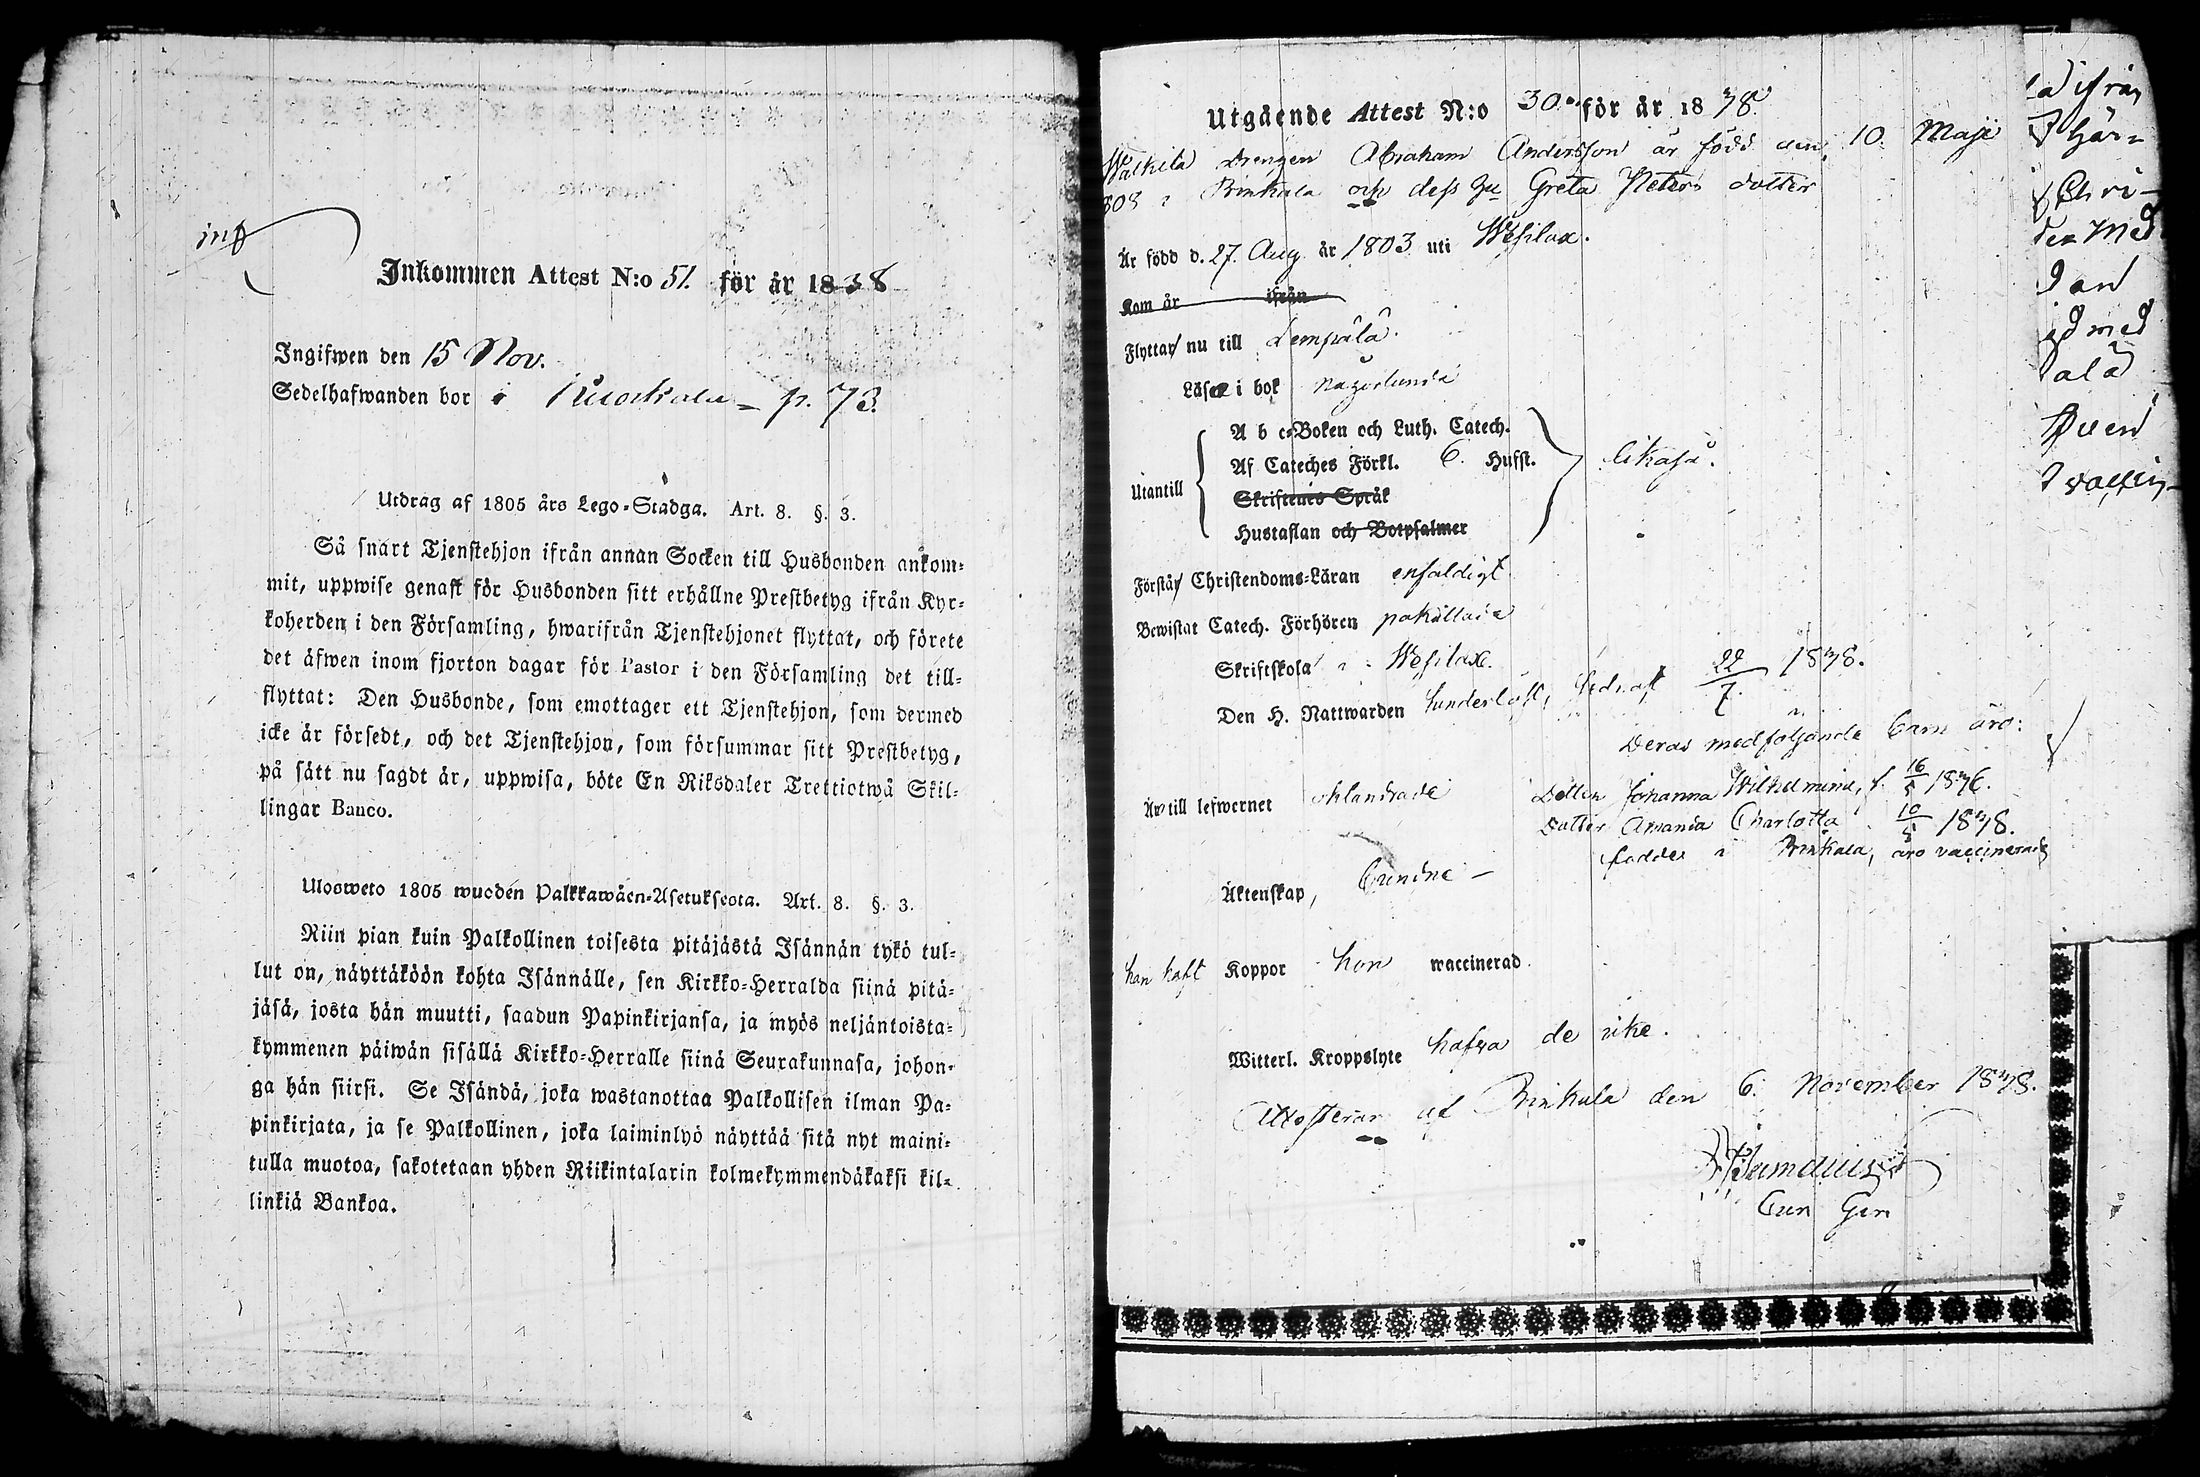 inf
Inkommen Attest N:o 51. för år 1838
Ingifwen den 15 Nov.
Sedelhafwanden bor i Kuorkala - p. 73.
Utdrag af 1805 års Lego-Stadga. Art. 8. §. 3.
Så snart Tjenstehjon ifrån annan Socken till Husbonden ankom-
mit, uppwise genast för Husbonden sitt erhållne Prestbetyg ifrån Kyr-
koherden i den Församling, hwarifrån Tjenstehjonet flyttat, och förete
det äfwen inom fjorton dagar för Pastor i den Församling det till-
flyttat: Den Husbonde, som emottager ett Tjenstehjon, som dermed
icke är försedt, och det Tjenstehjon, som försummar sitt Prestbetyg,
på sätt nu sagdt är, uppwisa, böte En Riksdaler Trettiotwå Skil-
lingar Banco.
Ulosweto 1805 wuoden Palkkawäen-Asetuksesta. Art. 8. §. 3.
Niin pian kuin Palkollinen toisesta pitäjästä Isännän tykö tul-
lut on, näyttäköön kohta Isännälle, sen Kirkko-Herralda siinä pitä-
jäsä, josta hän muutti, saadun Papinkirjansa, ja myös neljäntoista-
kymmenen päiwän sisällä Kirkko-Herralle siinä Seurakunnasa, johon-
ga hän siirsi. Se Isändä, joka wastanottaa Palkollisen ilman Pa-
pinkirjata, ja se Palkollinen, joka laiminlyö näyttää sitä nyt maini-
tulla muotoa, sakotetaan yhden Riikintalarin kolmekymmendäkaksi kil-
linkiä Bankoa.
Utgående Attest N:o 30 för år 1838.
Walkila Drengen Abraham Andersson är född den 10. Maji
808 i Pinkala och dess Hu Greta Peters dotter
Är född d. 27. Aug. år 1803 uti Wesilax.
Kom år ifrån
Flyttar nu till Lempälä.
Läser i bok någorlunda
Utantill
A b c-Boken och Luth. Catech.
Af Cateches Förkl. 6. Hufst.
Skriftenes Språk
Hustaflan och Botpsalmer
likaså.
Förstår Christendoms-Läran enfaldigt
Bewistat Catech. Förhören påkallade
Skriftskola i Wesilax.
Den H. Nattwarden sednast 22/7. 1838.
Deras medföljande Barn äro:
Är till lefwernet oklandrade
Dotter Johanna Wilhelmina, f. 16/5 1836.
Dotter Amanda Charlotta 10/5 1838.
födde i Pinkala, äro vaccinerade
Äktenskap, bundne -
han haft Koppor hon waccinerad.
Witterl. Kroppslyte hafwa de icke.
Attesterar af Pinkala den 6. November 1838.
ifrån
här-
Chri-
den Med
med
even